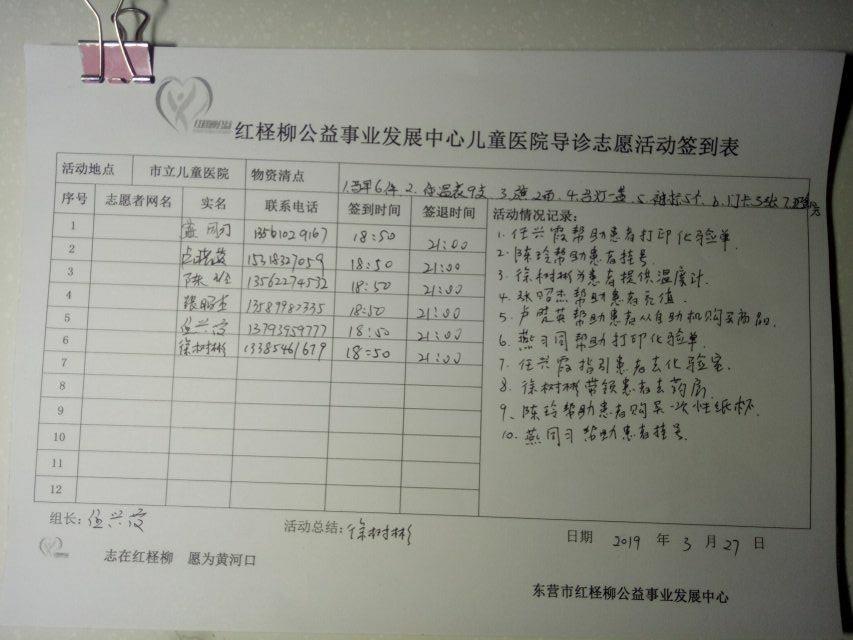 红柽柳公益事业发展中心儿童医院导诊志愿活动签到表
活动地点 市立儿童医院 物资清点 1.马甲6件 2.体温表9支 3.旗2面 4.台灯一盏 5. 5个 6.门卡3张 7.
序号 志愿者网名 实名 联系电话 签到时间 签退时间 活动情况记录:
1 燕同习 13561029167 18:50 21:00
2 卢晓英 15318327059 18:50 21:00
3 陈玲 13562274532 18:50 21:00
4 张昭杰 13589982335 18:50 21:00
5 任兴霞 13793959777 18:50 21:00
6 徐树彬 13385461679 18:50 21:00
7
8
9
10
11
12
1. 任兴霞帮助患者打印化验单.
2. 陈玲帮助患者挂号.
3. 徐树彬为患者提供温度计.
4. 张昭杰帮助患者充值.
5. 卢晓英帮助患者从自助机购买商品.
6. 燕习同帮助打印化验单.
7. 任兴霞指引患者去化验室.
8. 徐树彬带领患者去药房.
9. 陈玲帮助患者购买一次性纸杯.
10. 燕同习帮助患者挂号.
组长: 任兴霞 活动总结: 徐树彬 日期 2019 年 3 月 27 日
志在红柽柳 愿为黄河口
东营市红柽柳公益事业发展中心